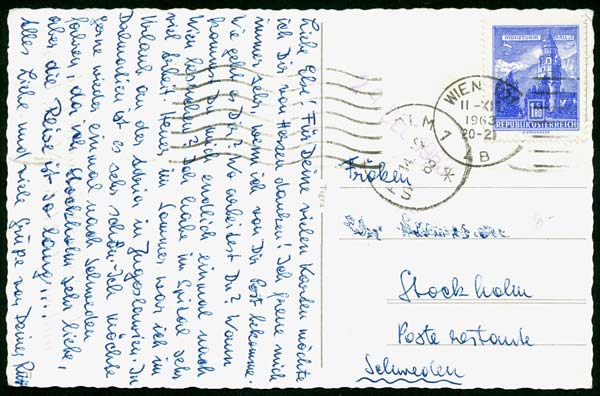 Liebe Elsy! Für Deine vielen Karten möchte
ich Dir von Herzen danken! Ich freue mich
immer sehr, wenn ich von Dir Post bekomme.
Wie geht es Dir? Wo arbeitest Du? Wann
kommst Du endlich einmal nach
Wien? Ich habe im Spital sehr
viel Arbeit. Heuer im Sommer war ich im
Urlaub an der Adria in Jugoslawien. In
Dalmatien ist es sehr schön. Ich möchte
gerne wieder einmal nach Schweden
fahren, da ich Stockholm sehr liebe,
aber die Reise ist so lang!...
Alles Liebe und viele Grüße von Deiner
Tigra
MÜNZTURM HALL
1.80
REPUBLIK ÖSTERREICH
WIEN
11-XI
1963
20-21
B
STOCKHOLM 1
14
Fröken
Stockholm
Poste restante
Schweden